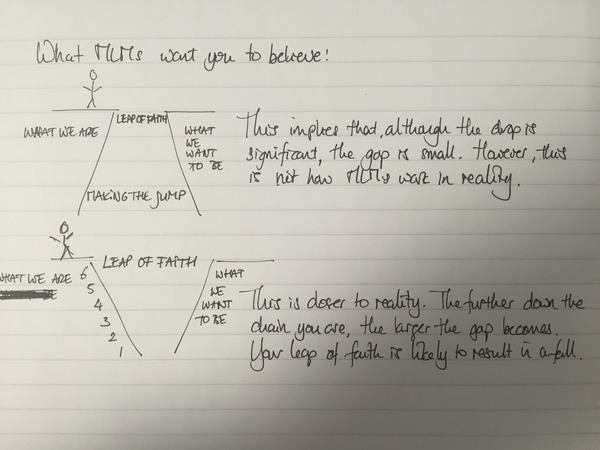 What MLMs want you to believe!
WHAT WE ARE
LEAP OF FAITH
WHAT
WE
WANT
TO BE
MAKING THE JUMP
This implies that, although the drop is
significant, the gap is small. However, this
is not how MLMs work in reality.
LEAP OF FAITH
WHAT WE ARE 6
5
4
3
2
1
WHAT
WE
WANT
TO BE
This is closer to reality. The further down the
chain you are, the larger the gap becomes.
Your leap of faith is likely to result in a fall.